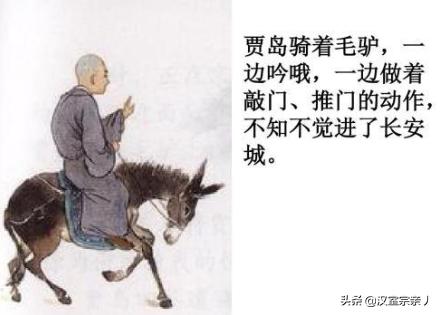 贾岛骑着毛驴，一
边吟哦，一边做着
敲门、推门的动作，
不知不觉进了长安
城。
头条 @汉室宗亲丿